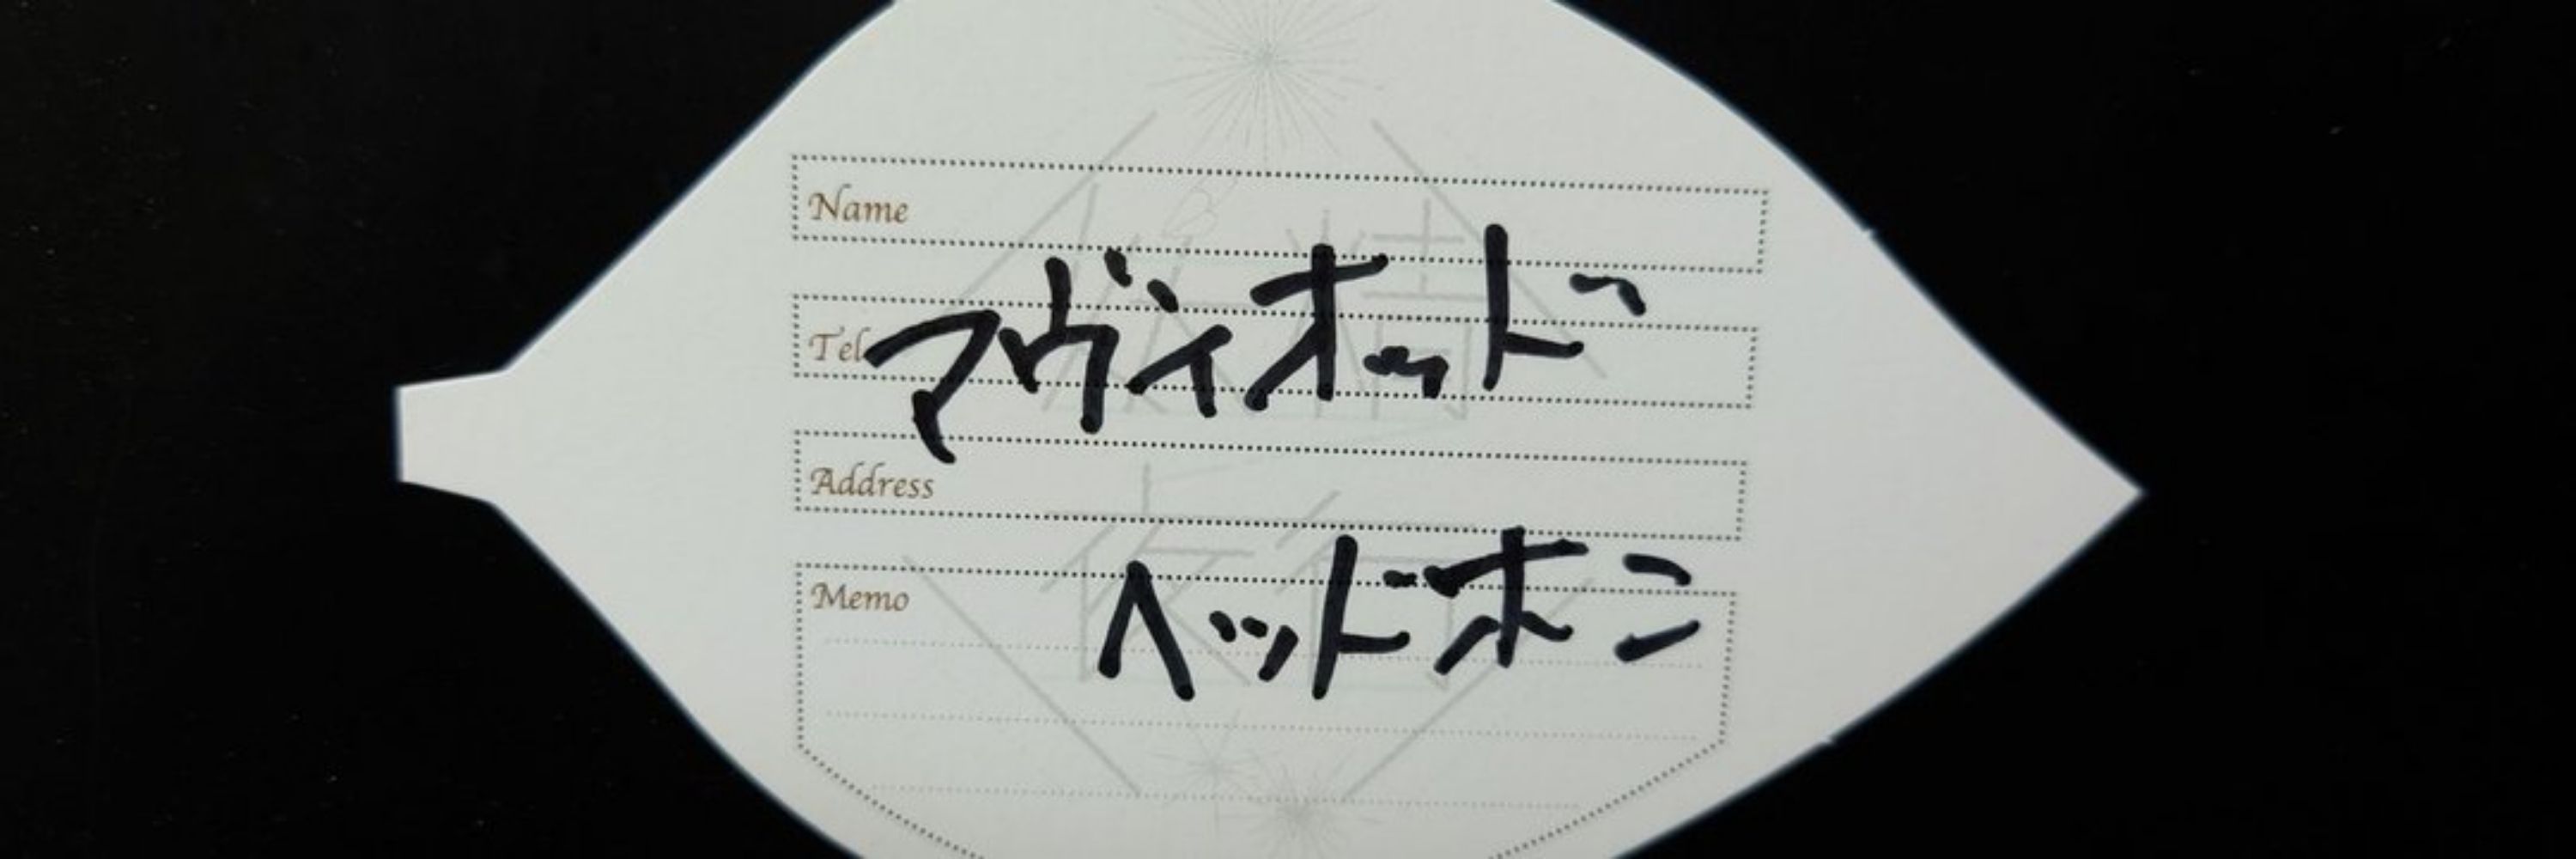 Name
Tel
マヴィオッド
Address
Memo
ヘッドホン